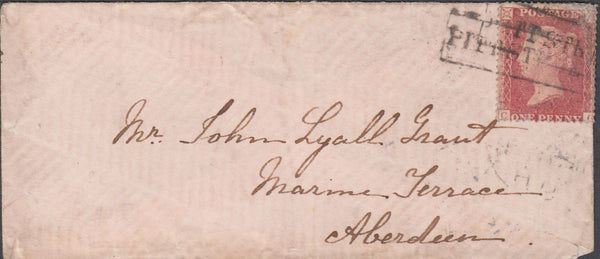 POSTAGE
ONE PENNY
Mr. John Lyall Grant
Marine Terrace
Aberdeen.